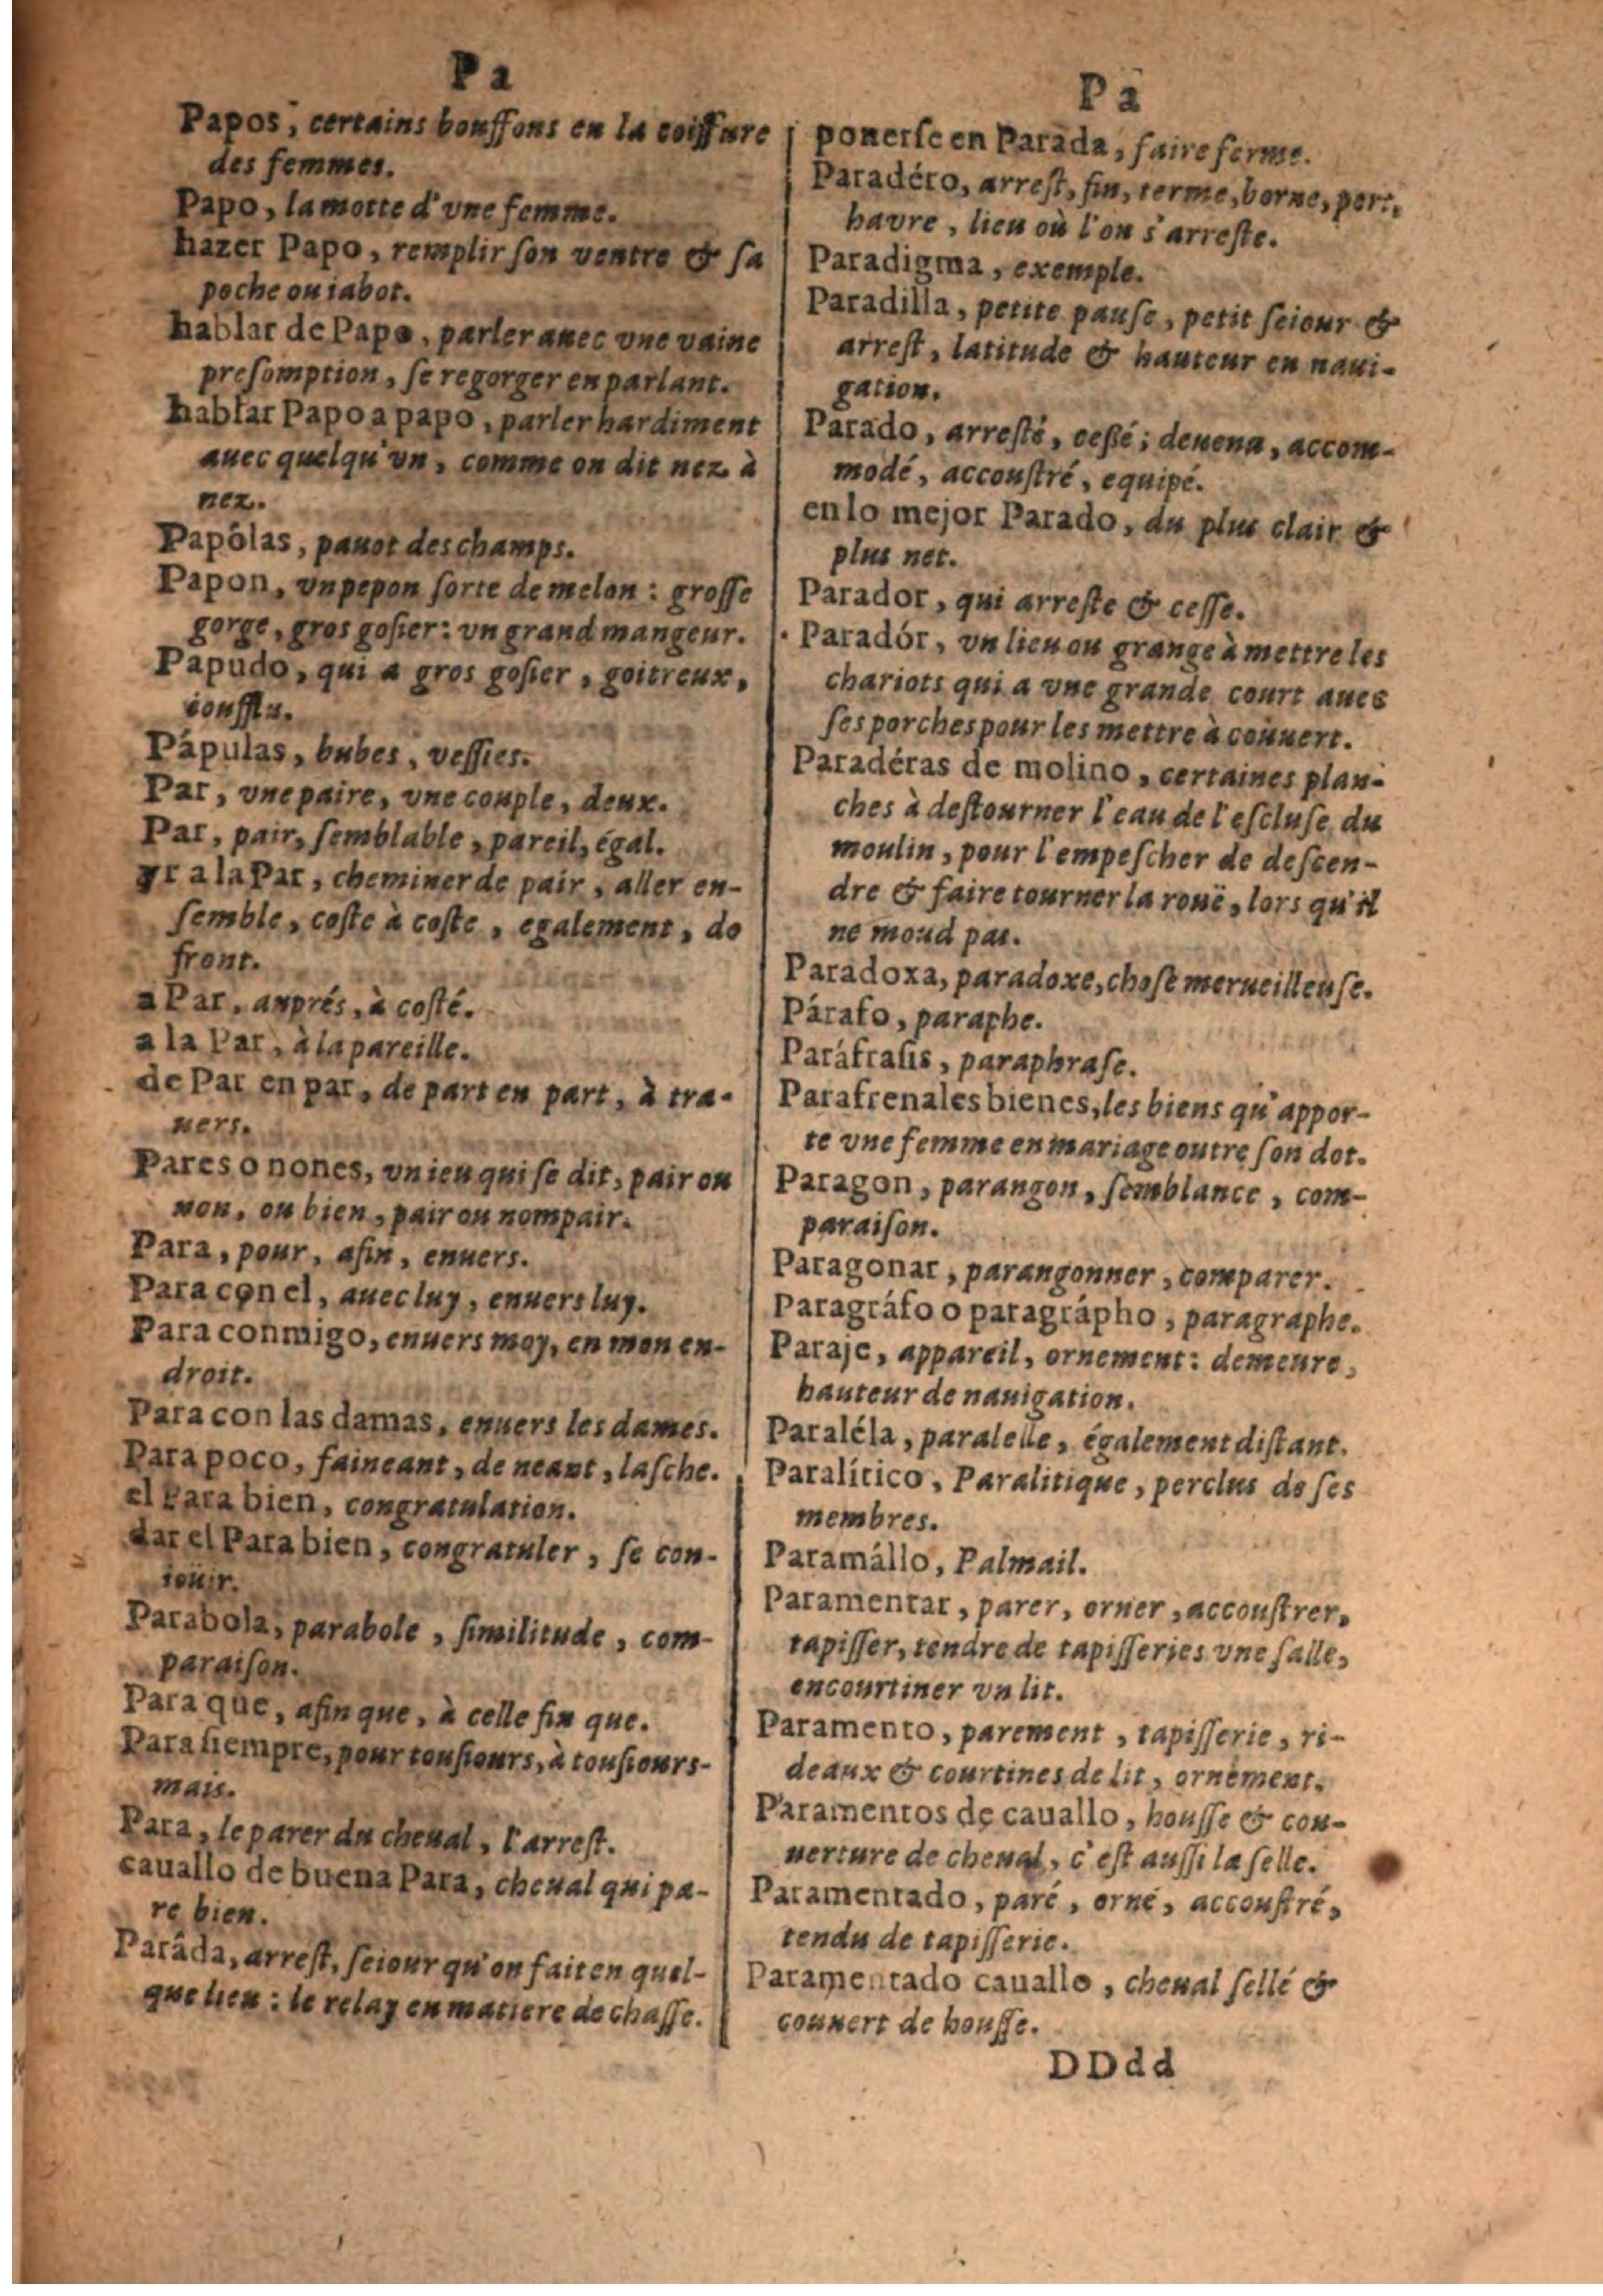 P a
Papos, certains bouffons en la coiffure
des femmes.
Papo, la motte d'vne femme.
hazer Papo, remplir ſon ventre & ſa
poche ou iabot.
hablar de Papo, parler auec vne vaine
preſomption, ſe regorger en parlant.
hablar Papo a papo, parler hardiment
auec quelqu'vn, comme on dit nez à
nez.
Papólas, pauot des champs.
Papon, vn pepon ſorte de melon: groſſe
gorge, gros goſier: vn grand mangeur.
Papudo, qui a gros goſier, goitreux,
ioufflu.
Pápulas, bubes, veſſies.
Par, vne paire, vne couple, deux.
Par, pair, ſemblable, pareil, égal.
yr a la Par, cheminer de pair, aller en-
ſemble, coſte à coſte, egalement, de
front.
a Par, auprés, à coſté.
a la Par, à la pareille.
de Par en par, de part en part, à tra-
uers.
Pares o nones, vn ieu qui ſe dit, pair ou
non, ou bien, pair ou nompair.
Para, pour, afin, enuers.
Para con el, auec luy, enuers luy.
Para conmigo, enuers moy, en mon en-
droit.
Para con las damas, enuers les dames.
Para poco, faineant, de neant, laſche.
el Para bien, congratulation.
dar el Para bien, congratuler, ſe con-
ioüir.
Parabola, parabole, ſimilitude, com-
paraiſon.
Para que, afin que, à celle fin que.
Para ſiempre, pour touſiours, à touſiours-
mais.
Para, le parer du cheual, l'arreſt.
cauallo de buena Para, cheual qui pa-
re bien.
Paráda, arreſt, ſeiour qu'on fait en quel-
que lieu: le relay en matiere de chaſſe.
P a
ponerſe en Parada, faire ferme.
Paradéro, arreſt, fin, terme, borne, port,
havre, lieu où l'on s'arreſte.
Paradigma, exemple.
Paradilla, petite pauſe, petit ſeiour &
arreſt, latitude & hauteur en naui-
gation.
Parado, arreſté, ceßé; deuenu, accom-
modé, accouſtré, equipé.
en lo mejor Parado, du plus clair &
plus net.
Parador, qui arreſte & ceſſe.
Paradór, vn lieu ou grange à mettre les
chariots qui a vne grande court auec
ſes porches pour les mettre à couuert.
Paradéras de molino, certaines plan-
ches à deſtourner l'eau de l'eſcluſe du
moulin, pour l'empeſcher de deſcen-
dre & faire tourner la rouë, lors qu'il
ne moud pas.
Paradoxa, paradoxe, choſe merueilleuſe.
Párafo, paraphe.
Paráfraſis, paraphraſe.
Parafrenales bienes, les biens qu'appor-
te vne femme en mariage outre ſon dot.
Paragon, parangon, ſemblance, com-
paraiſon.
Paragonar, parangonner, comparer.
Paragráfo o paragrápho, paragraphe.
Paraje, appareil, ornement: demeure,
hauteur de nauigation.
Paraléla, paralelle, également diſtant.
Paralítico, Paralitique, perclus de ſes
membres.
Paramállo, Palmail.
Paramentar, parer, orner, accouſtrer,
tapiſſer, tendre de tapiſſeries vne ſalle,
encourtiner vn lit.
Paramento, parement, tapiſſerie, ri-
deaux & courtines de lit, ornement.
Paramentos de cauallo, houſſe & cou-
uerture de cheual, c'eſt auſſi la ſelle.
Paramentado, paré, orné, accouſtré,
tendu de tapiſſerie.
Paramentado cauallo, cheual ſellé &
couuert de houſſe.
DDdd